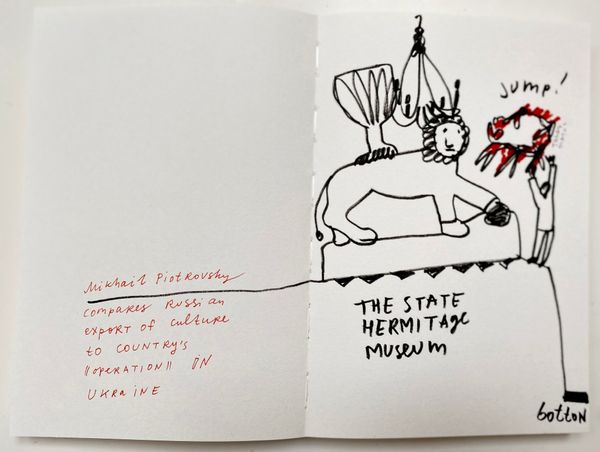 Mikhail Piotrovsky
compares Russian
export of culture
to country's
"operation" in
Ukraine
jump!
THE STATE
HERMITAGE
MUSEUM
botton